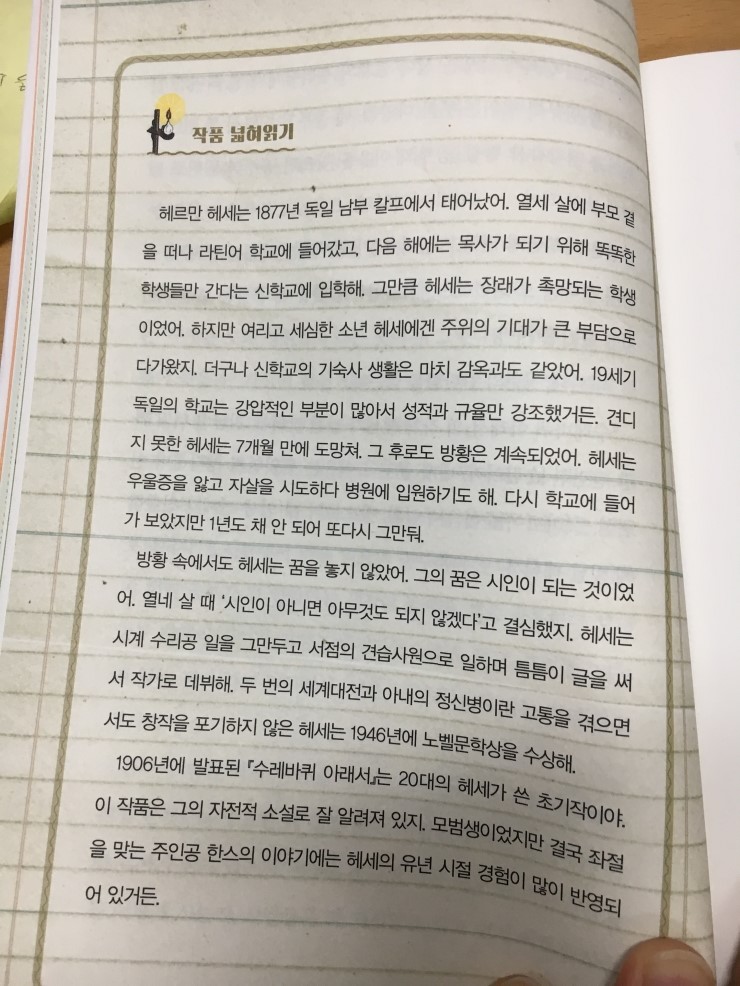 작품 넓혀읽기
헤르만 헤세는 1877년 독일 남부 칼프에서 태어났어. 열세 살에 부모 곁
을 떠나 라틴어 학교에 들어갔고, 다음 해에는 목사가 되기 위해 똑똑한
학생들만 간다는 신학교에 입학해. 그만큼 헤세는 장래가 촉망되는 학생
이었어. 하지만 여리고 세심한 소년 헤세에겐 주위의 기대가 큰 부담으로
다가왔지. 더구나 신학교의 기숙사 생활은 마치 감옥과도 같았어. 19세기
독일의 학교는 강압적인 부분이 많아서 성적과 규율만 강조했거든. 견디
지 못한 헤세는 7개월 만에 도망쳐. 그 후로도 방황은 계속되었어. 헤세는
우울증을 앓고 자살을 시도하다 병원에 입원하기도 해. 다시 학교에 들어
가 보았지만 1년도 채 안 되어 또다시 그만둬.
방황 속에서도 헤세는 꿈을 놓지 않았어. 그의 꿈은 시인이 되는 것이었
어. 열네 살 때 '시인이 아니면 아무것도 되지 않겠다'고 결심했지. 헤세는
시계 수리공 일을 그만두고 서점의 견습사원으로 일하며 틈틈이 글을 써
서 작가로 데뷔해. 두 번의 세계대전과 아내의 정신병이란 고통을 겪으면
서도 창작을 포기하지 않은 헤세는 1946년에 노벨문학상을 수상해.
1906년에 발표된 『수레바퀴 아래서』는 20대의 헤세가 쓴 초기작이야.
이 작품은 그의 자전적 소설로 잘 알려져 있지. 모범생이었지만 결국 좌절
을 맞는 주인공 한스의 이야기에는 헤세의 유년 시절 경험이 많이 반영되
어 있거든.